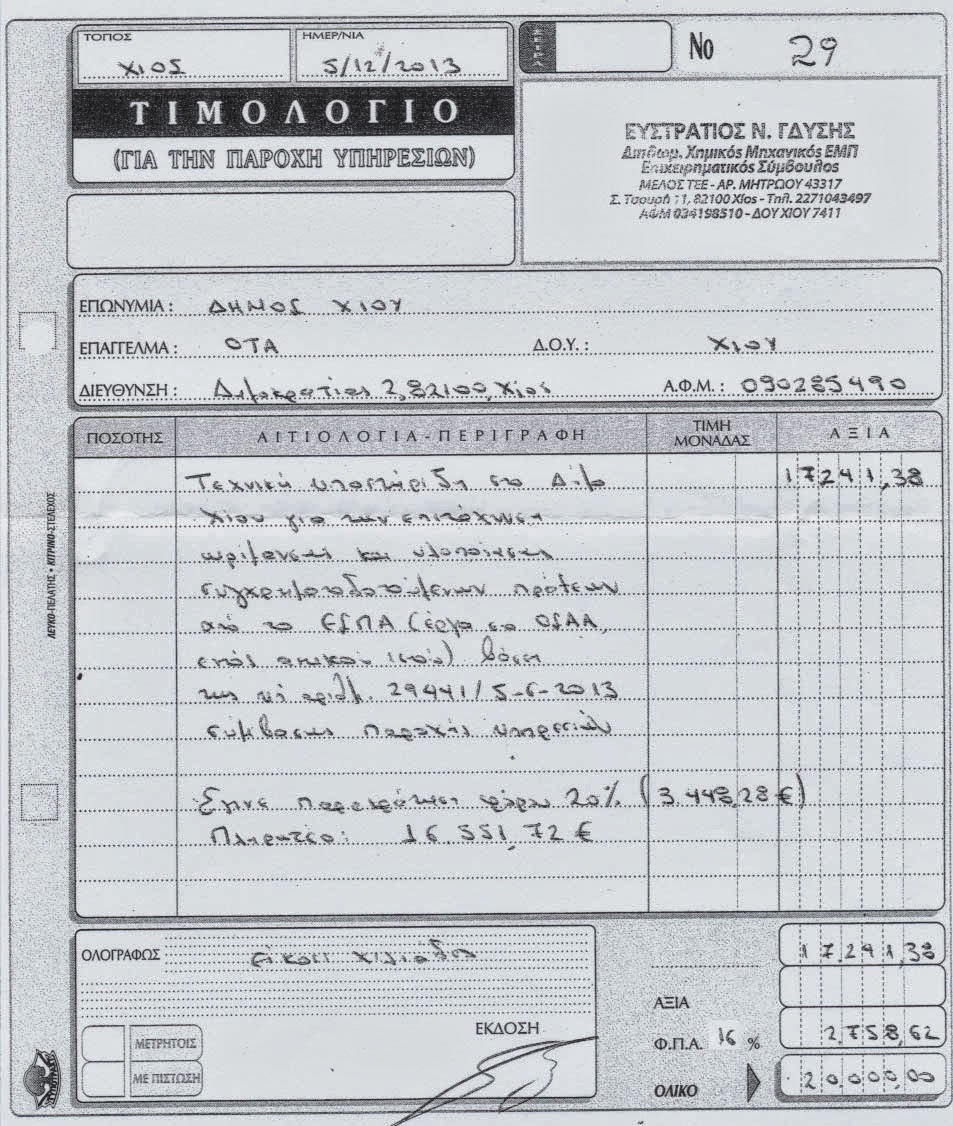 ΤΟΠΟΣ
ΧΙΟΣ
ΗΜΕΡ/ΝΙΑ
5/12/2013
Νο 29
ΤΙΜΟΛΟΓΙΟ
(ΓΙΑ ΤΗΝ ΠΑΡΟΧΗ ΥΠΗΡΕΣΙΩΝ)
ΕΥΣΤΡΑΤΙΟΣ Ν. ΓΔΥΣΗΣ
Διπλωμ. Χημικός Μηχανικός ΕΜΠ
Επιχειρηματικός Σύμβουλος
ΜΕΛΟΣ ΤΕΕ - ΑΡ. ΜΗΤΡΩΟΥ 43317
Σ. Τσουρή 11, 82100 Χίος - Τηλ. 2271043497
ΑΦΜ 034198510 - ΔΟΥ ΧΙΟΥ 7411
ΕΠΩΝΥΜΙΑ : ΔΗΜΟΣ ΧΙΟΥ
ΕΠΑΓΓΕΛΜΑ : ΟΤΑ Δ.Ο.Υ. : ΧΙΟΥ
ΔΙΕΥΘΥΝΣΗ : Δημοκρατίας 2, 82100, Χίος Α.Φ.Μ. : 090285490
ΠΟΣΟΤΗΣ ΑΙΤΙΟΛΟΓΙΑ - ΠΕΡΙΓΡΑΦΗ ΤΙΜΗ ΜΟΝΑΔΑΣ ΑΞΙΑ
Τεχνική υποστήριξη στο Δήμο 17241,38
Χίου για την επιτάχυνση
ωρίμανσης και υλοποίησης
συγχρηματοδοτούμενων πράξεων
από το ΕΣΠΑ (έργα στο ΟΣΑΑ,
βάσει
της υπ αριθμ. 29441/5-6-2013
σύμβασης παροχής υπηρεσιών
Έγινε παρακράτηση φόρου 20% (3.448,28 €)
Πληρωτέο: 16.551,72 €
ΛΕΥΚΟ-ΠΕΛΑΤΗΣ • ΚΙΤΡΙΝΟ-ΣΤΕΛΕΧΟΣ
ΟΛΟΓΡΑΦΩΣ είκοσι χιλιάδες
17.241,38
ΑΞΙΑ
Φ.Π.Α. 16 % 2.758,62
ΟΛΙΚΟ 20.000,00
ΕΚΔΟΣΗ
ΜΕΤΡΗΤΟΙΣ
ΜΕ ΠΙΣΤΩΣΗ